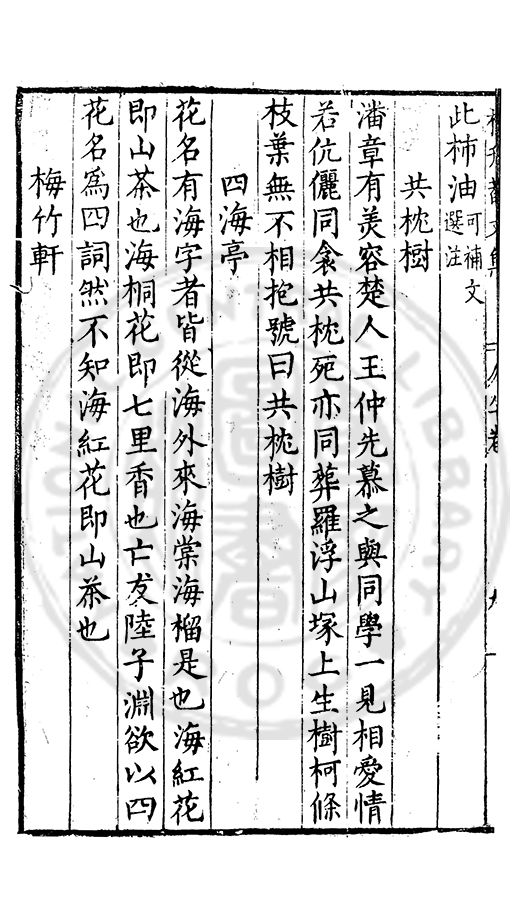 此柹油可補文
選注
共枕樹
潘章有美容楚人王仲先慕之與同學一見相愛情
若伉儷同衾共枕死亦同葬羅浮山塚上生樹柯條
枝葉無不相抱號曰共枕樹
四海亭
花名有海字者皆從海外來海棠海榴是也海紅花
即山茶也海桐花即七里香也亡友陸子淵欲以四
花名爲四詞然不知海紅花即山茶也
梅竹軒